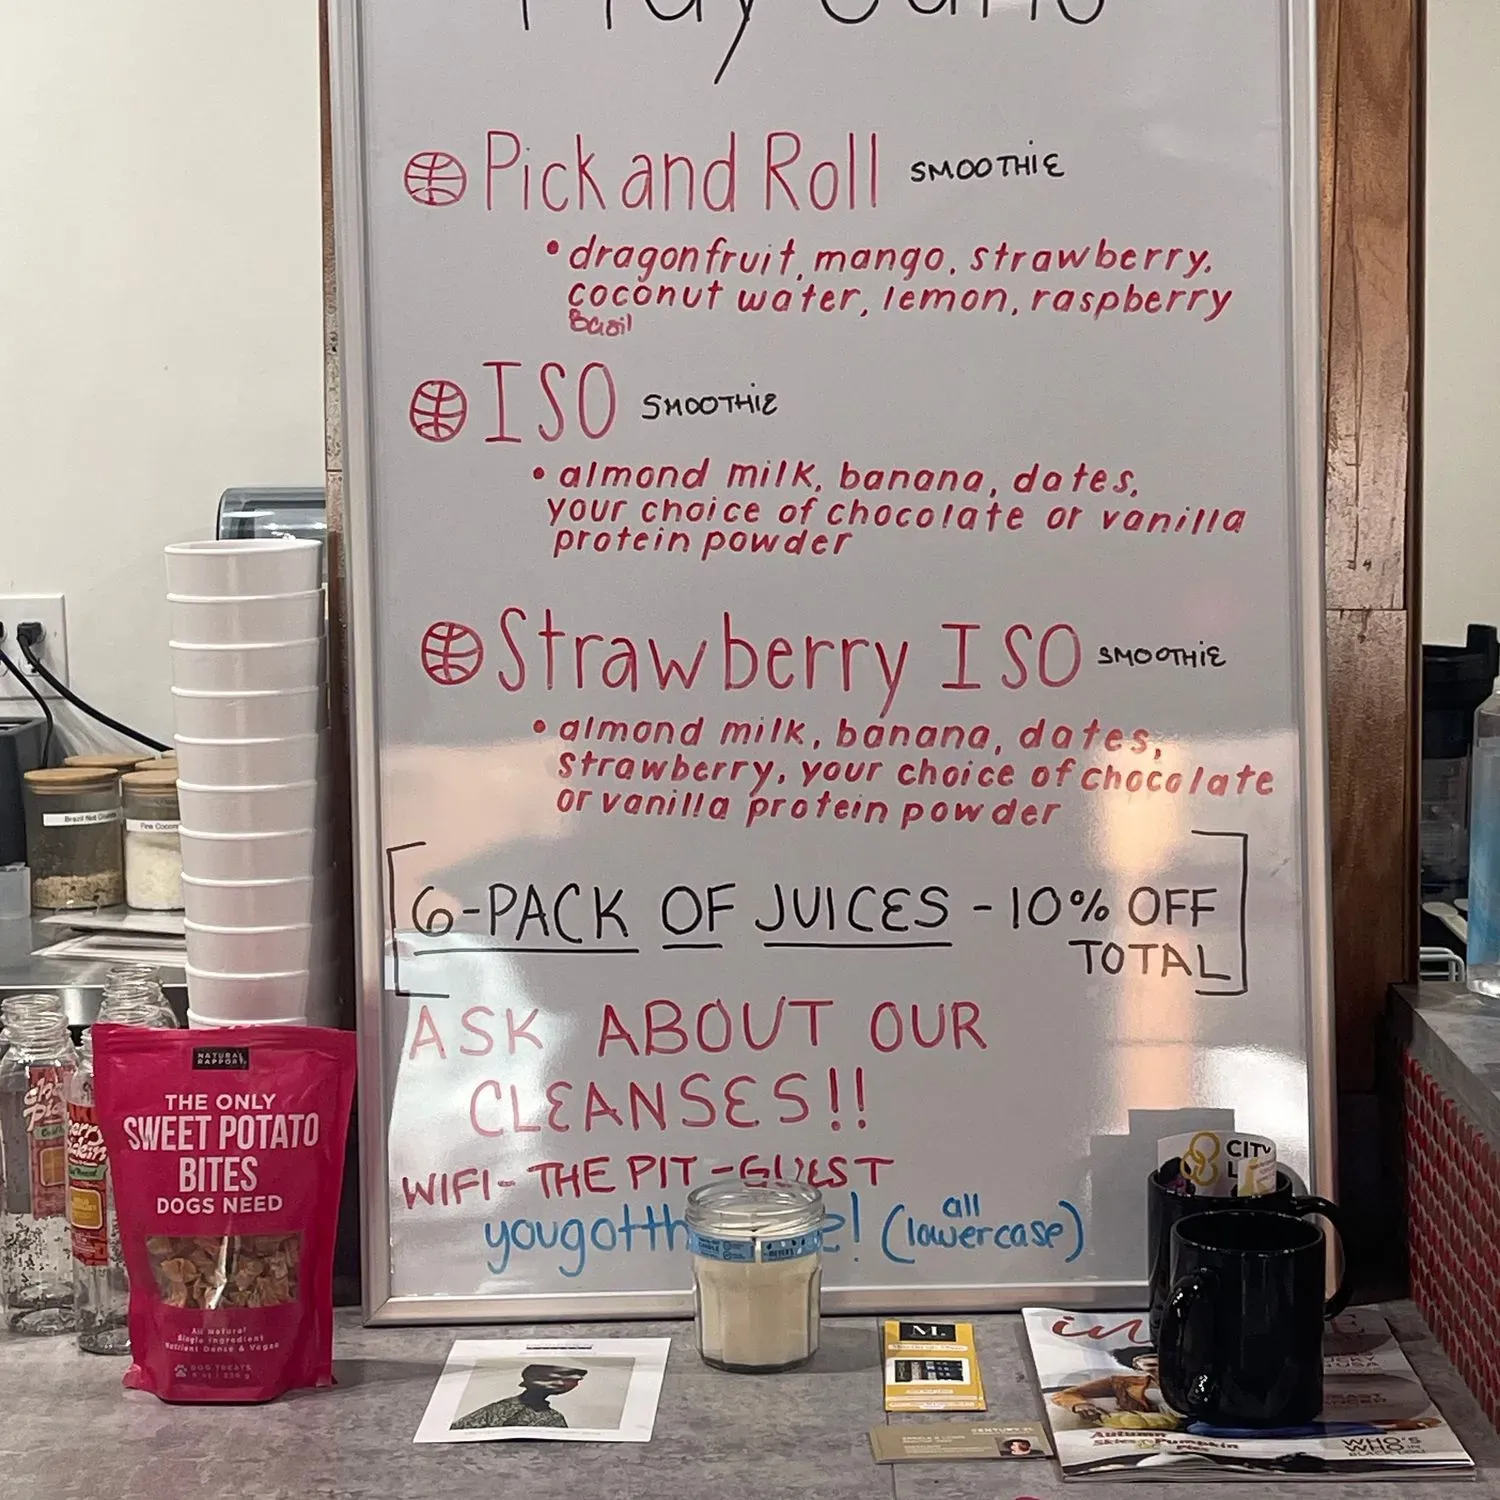 Pick and Roll SMOOTHIE
• dragonfruit, mango, strawberry,
coconut water, lemon, raspberry
Basil
ISO SMOOTHIE
• almond milk, banana, dates,
your choice of chocolate or vanilla
protein powder
Strawberry ISO SMOOTHIE
• almond milk, banana, dates,
strawberry, your choice of chocolate
or vanilla protein powder
6-PACK OF JUICES - 10% OFF
TOTAL
ASK ABOUT OUR
CLEANSES!!
WIFI- THE PIT -GUEST
all
(lowercase)
Brazil Nut
Pine
NATURAL
RAPPORT
THE ONLY
SWEET POTATO
BITES
DOGS NEED
All Natural
Single Ingredient
Nutrient Dense & Vegan
DOG TREATS
CITY
M.
CENTURY 21
Autumn
WHO'S
WHO IN